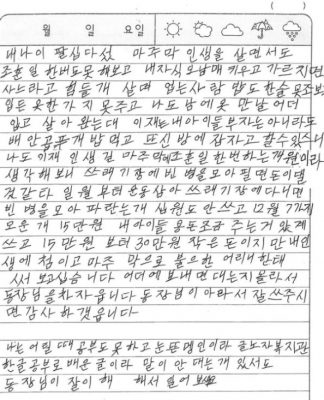 ( )
월 일 요일
내나이 팔십다섰 마주막 인생을 살면서도
조훈일 한버도못해보고 내자식 오남매 키우고 가르치면
사느라고 힘들게 살며 없는사람 밥도한술 못조보
입든 옷한가지 못주고 나도 남에 옷 만날어더
입고 살아완는대 이재는내아이들부자는아니라도
배안곱푸개 밥먹고 뜨신방에잠자고할수있스니
나도 이재 인생길 마주막에 조훈일 한번하는개 원이라
생각해보니 쓰래기장에빈병을모아필면돈이댈
것갇다 일월부터 운동삼아 쓰래기장에다니면
빈 병을 모아 파란는개 십원도 안쓰고 12월7가지
모운 개 15만원 내아이들 용돈조금 주는거 있게
쓰고 15만원 부터30만원 작은 돈이지만 내인
생에 첨이고 마주 막으로 불으한 어리내한태
써보고십습니다 어데에보내면대는지몰라서
동장님을차자읍니다 동장님이 아라서 잘쓰주시
면 감사 하겟읍니다
나는어릴때공부도못하고 눈뜬맹인이라 글노자복지관
한글공부로배운글이라 말이 안 대는개 있서도
동장님이 잘이해 해서 읽어보